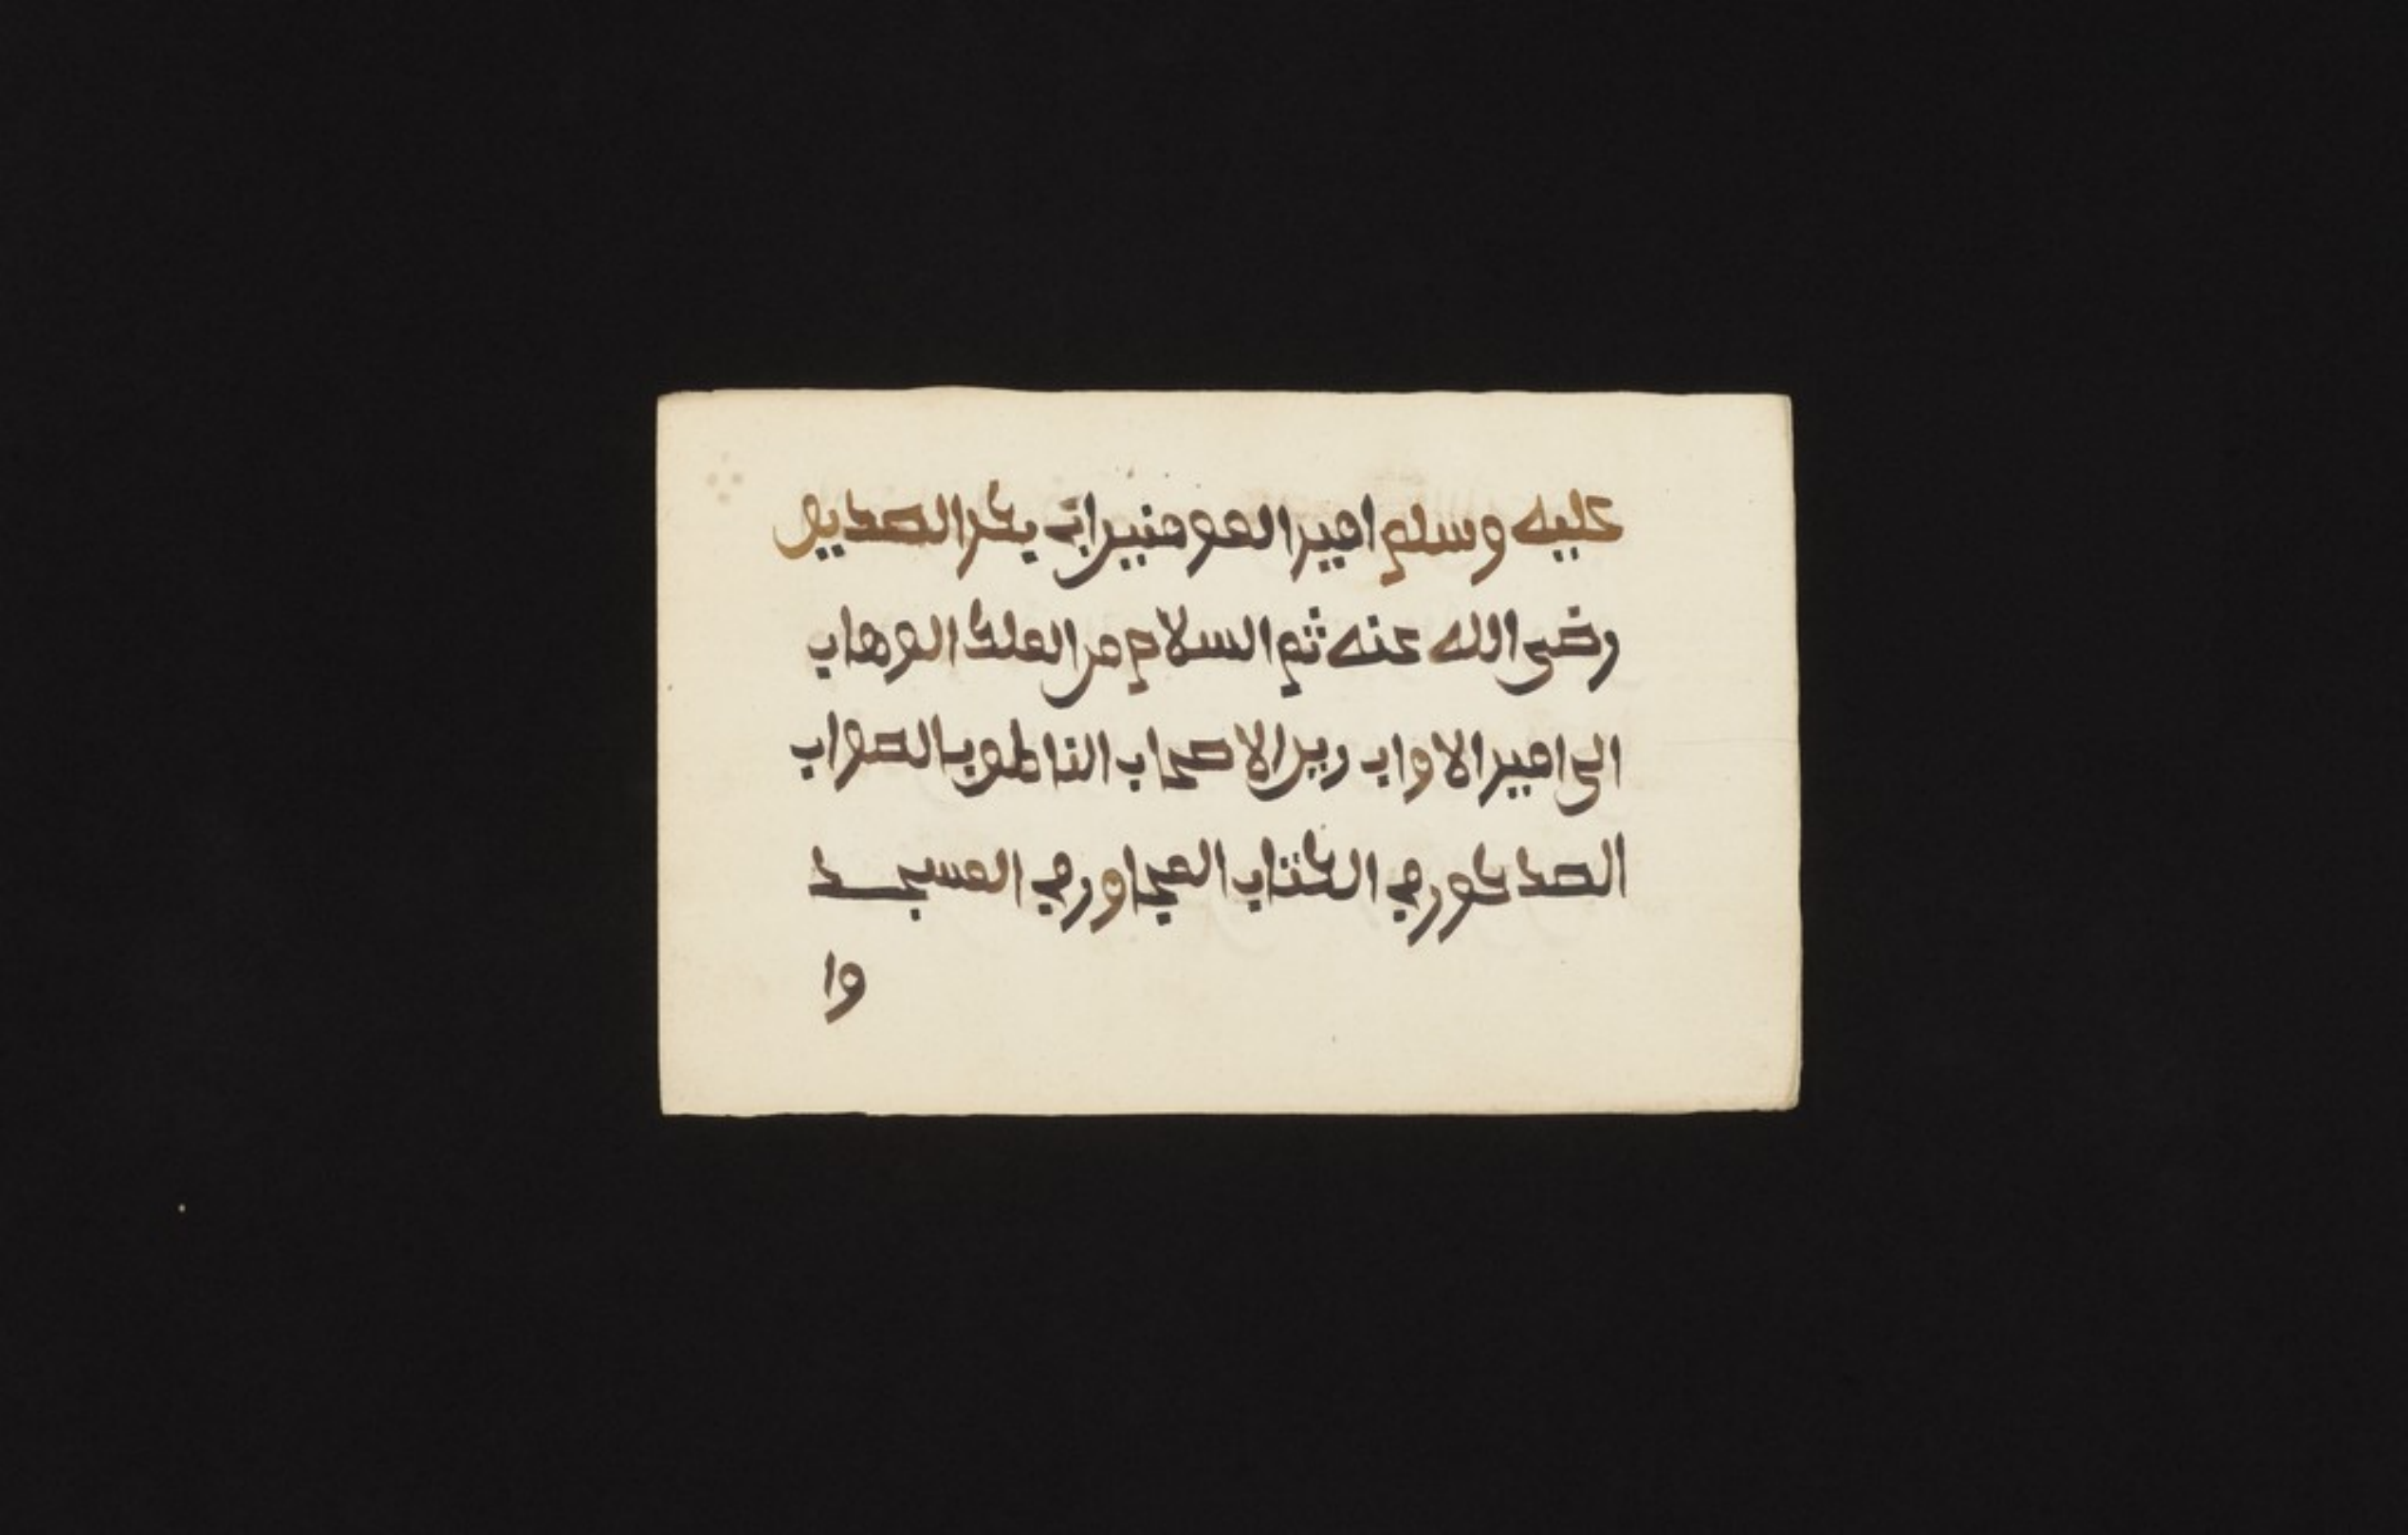 عليه وسلم امير المومنين ابى بكر الصديق
رضي الله عنه ثم السلام من الملك الوهاب
الى امير الاواب زين الاصحاب الناطق بالصواب
المذكور في الكتاب المجاور في المسجد
وا